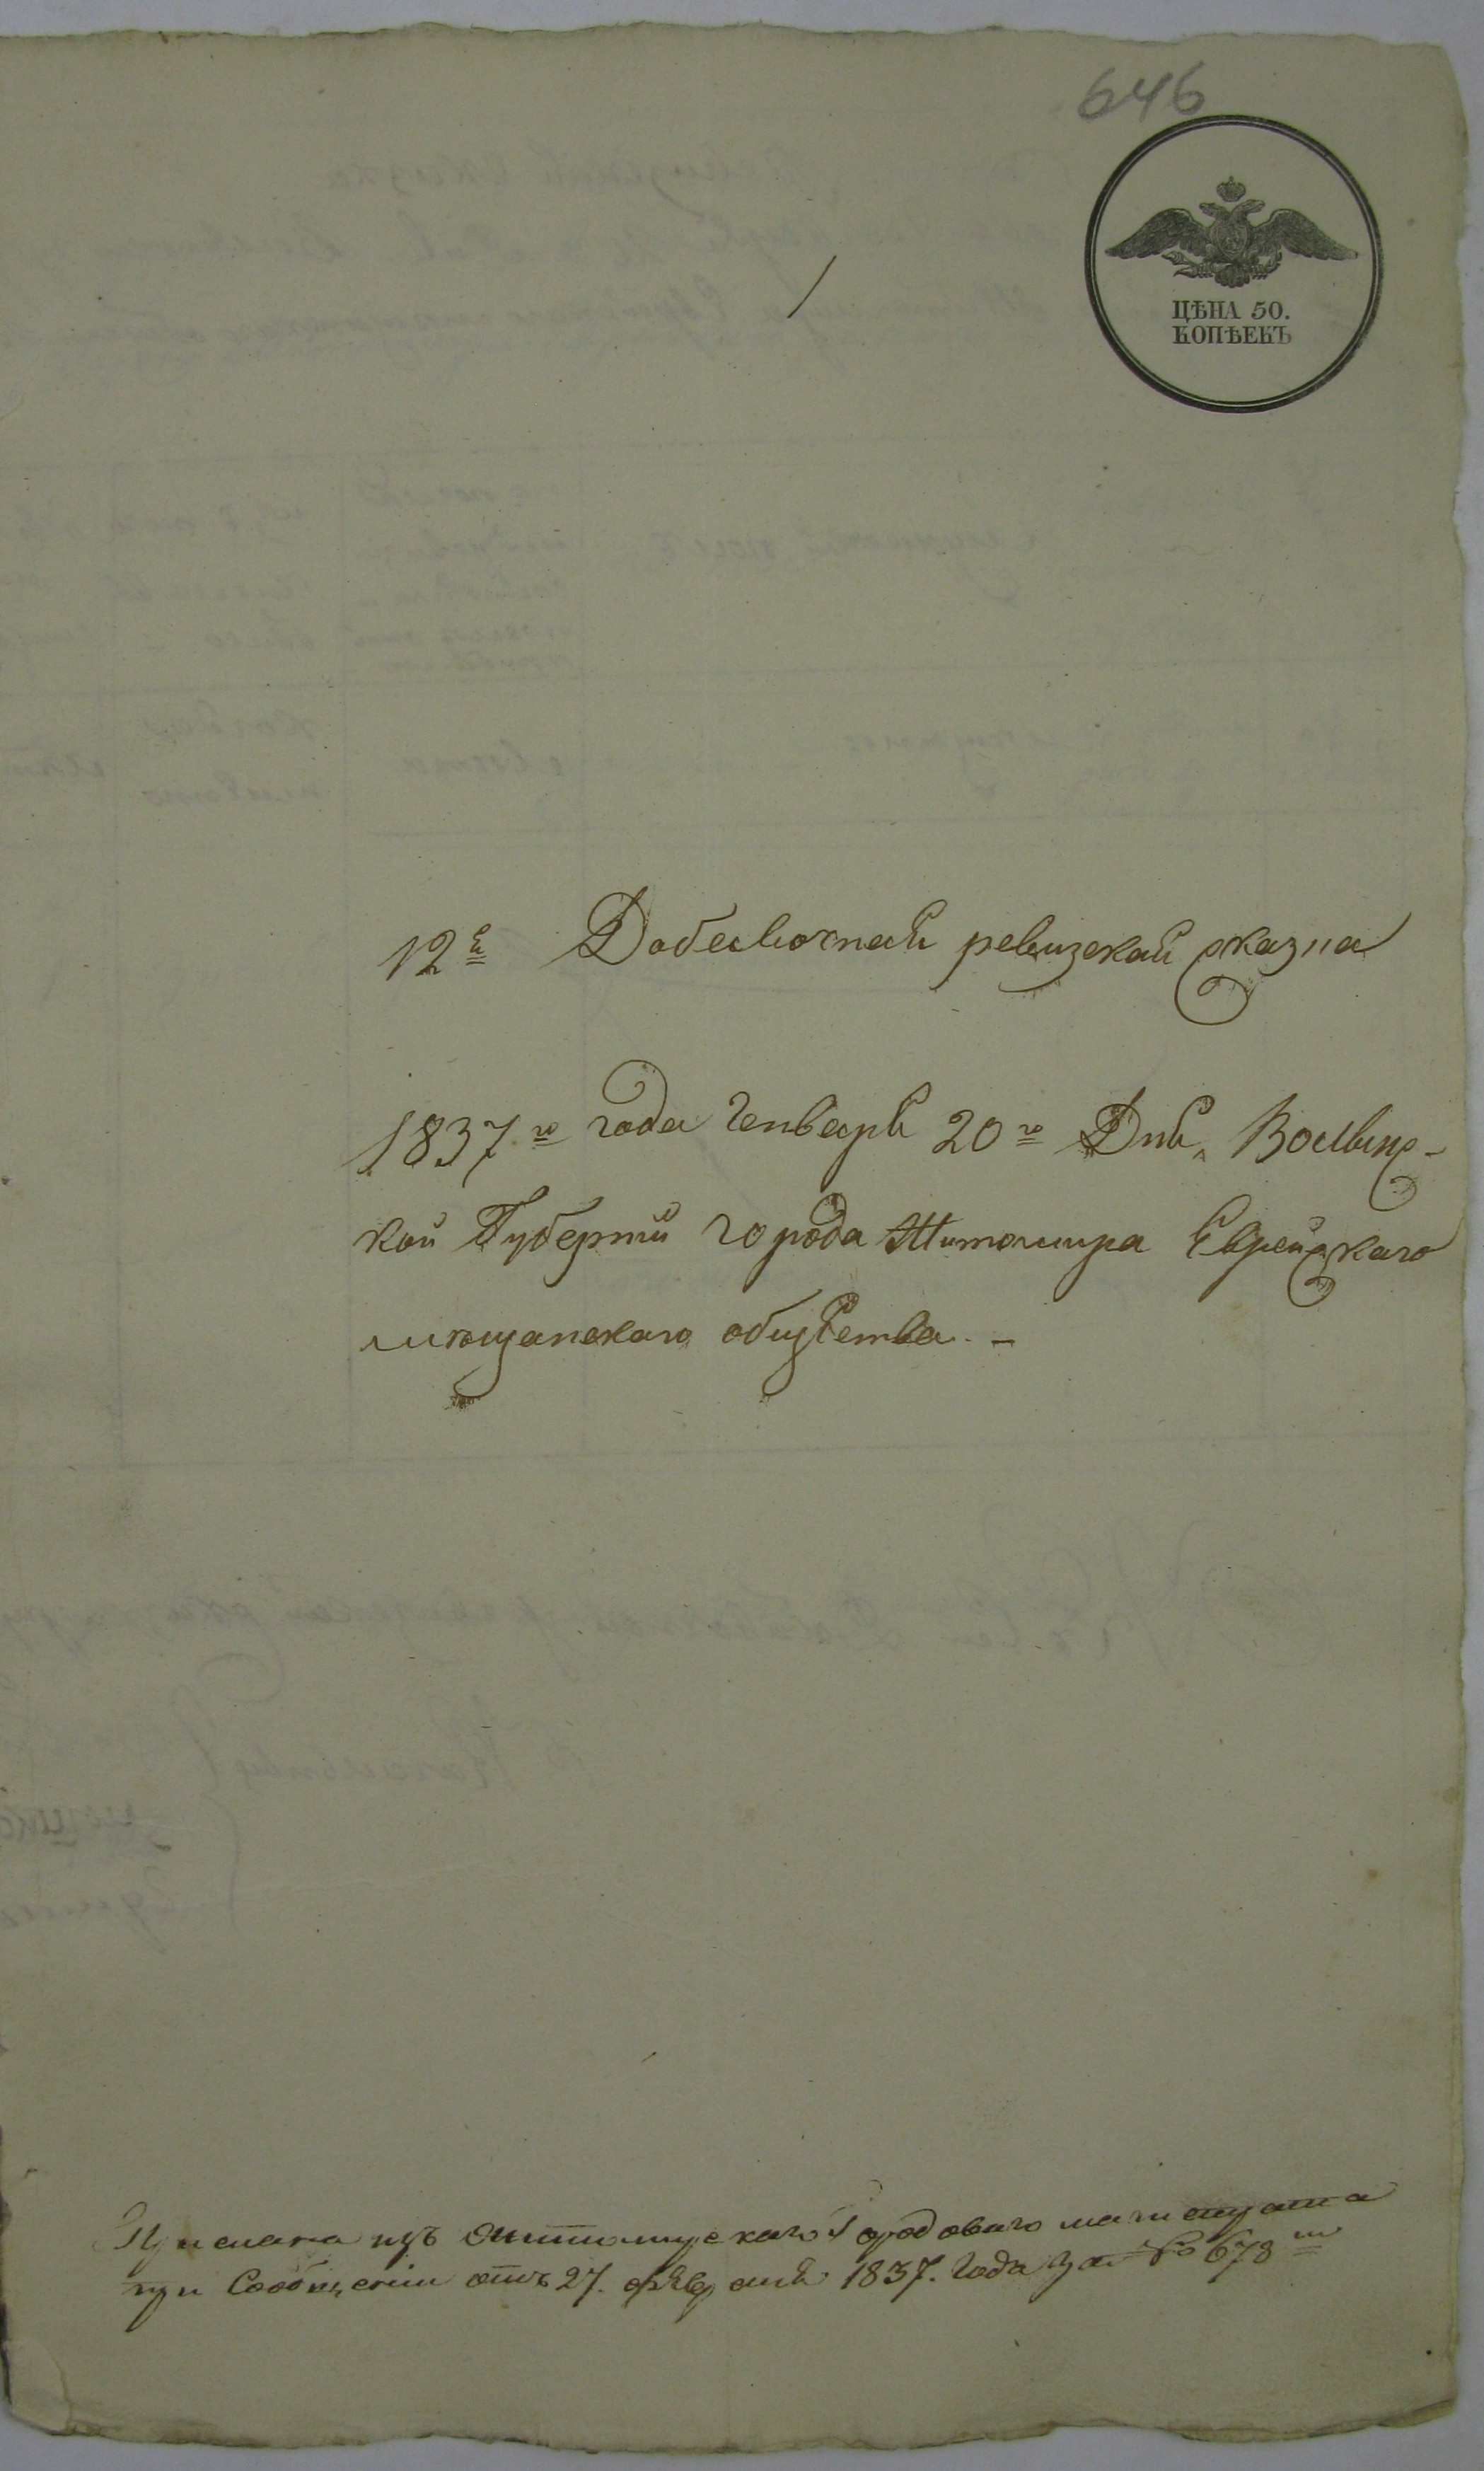 646
ЦѢНА 50.
КОПѢЕКЪ
12я Добавочная ревизская сказка
1837го года Генваря 20го Дня, Волынс-
кой Губерніи города Житомира Еврейскаго
мѣщанскаго общества. –
Прислана изъ Житомирскаго Городоваго магистрата
при Сообщеніи отъ 27. февраля 1837. Года за № 678м